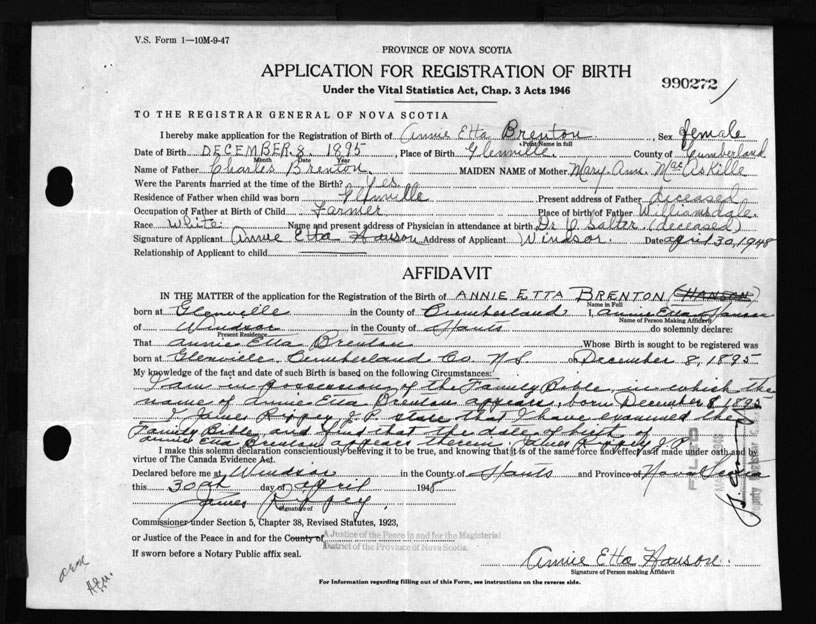 V.S. Form 1—10M-9-47
PROVINCE OF NOVA SCOTIA
APPLICATION FOR REGISTRATION OF BIRTH
990272
Under the Vital Statistics Act, Chap. 3 Acts 1946
TO THE REGISTRAR GENERAL OF NOVA SCOTIA
I hereby make application for the Registration of Birth of Annie Etta Brenton, Sex female
Print Name in full
Date of Birth DECEMBER 8. 1895, Place of Birth Glenville County of Cumberland
Month Date Year
Name of Father Charles Brenton. MAIDEN NAME of Mother Mary Ann MacAskille
Were the Parents married at the time of the Birth? Yes.
Residence of Father when child was born Glenville Present address of Father deceased
Occupation of Father at Birth of Child Farmer Place of birth of Father Williamsdale.
Race White. Name and present address of Physician in attendance at birth Dr Salter (deceased)
Signature of Applicant Annie Etta Hanson Address of Applicant Windsor. Date April 30, 1948
Relationship of Applicant to child
AFFIDAVIT
IN THE MATTER of the application for the Registration of the Birth of ANNIE ETTA BRENTON (HANSON)
Name in Full
born at Glenville in the County of Cumberland I, Annie Etta Hanson
Name of Person Making Affidavit
of Windsor in the County of Hants do solemnly declare:
Present Residence
That Annie Etta Brenton Whose Birth is sought to be registered was
born at Glenville, Cumberland Co. N.S. on December 8, 1895
My knowledge of the fact and date of such Birth is based on the following Circumstances:
I am in possession of the Family Bible, in which the
name of Annie Etta Brenton appears, born December 8, 1895
I James Rippey J.P. state that I have examined the
Family Bible, and find that the date of birth of
Annie Etta Brenton appears therein. James Rippey J.P.
I make this solemn declaration conscientiously believing it to be true, and knowing that it is of the same force and effect as if made under oath and by
virtue of The Canada Evidence Act.
Declared before me at Windsor in the County of Hants and Province of Nova Scotia
this 30th day of April 1948
James Rippey.
Signature of
Commissioner under Section 5, Chapter 38, Revised Statutes, 1923,
or Justice of the Peace in and for the County of A Justice of the Peace in and for the Magisterial
District of the Province of Nova Scotia.
If sworn before a Notary Public affix seal.
Annie Etta Hanson.
Signature of Person making Affidavit
For Information regarding filling out of this Form, see instructions on the reverse side.
FILED